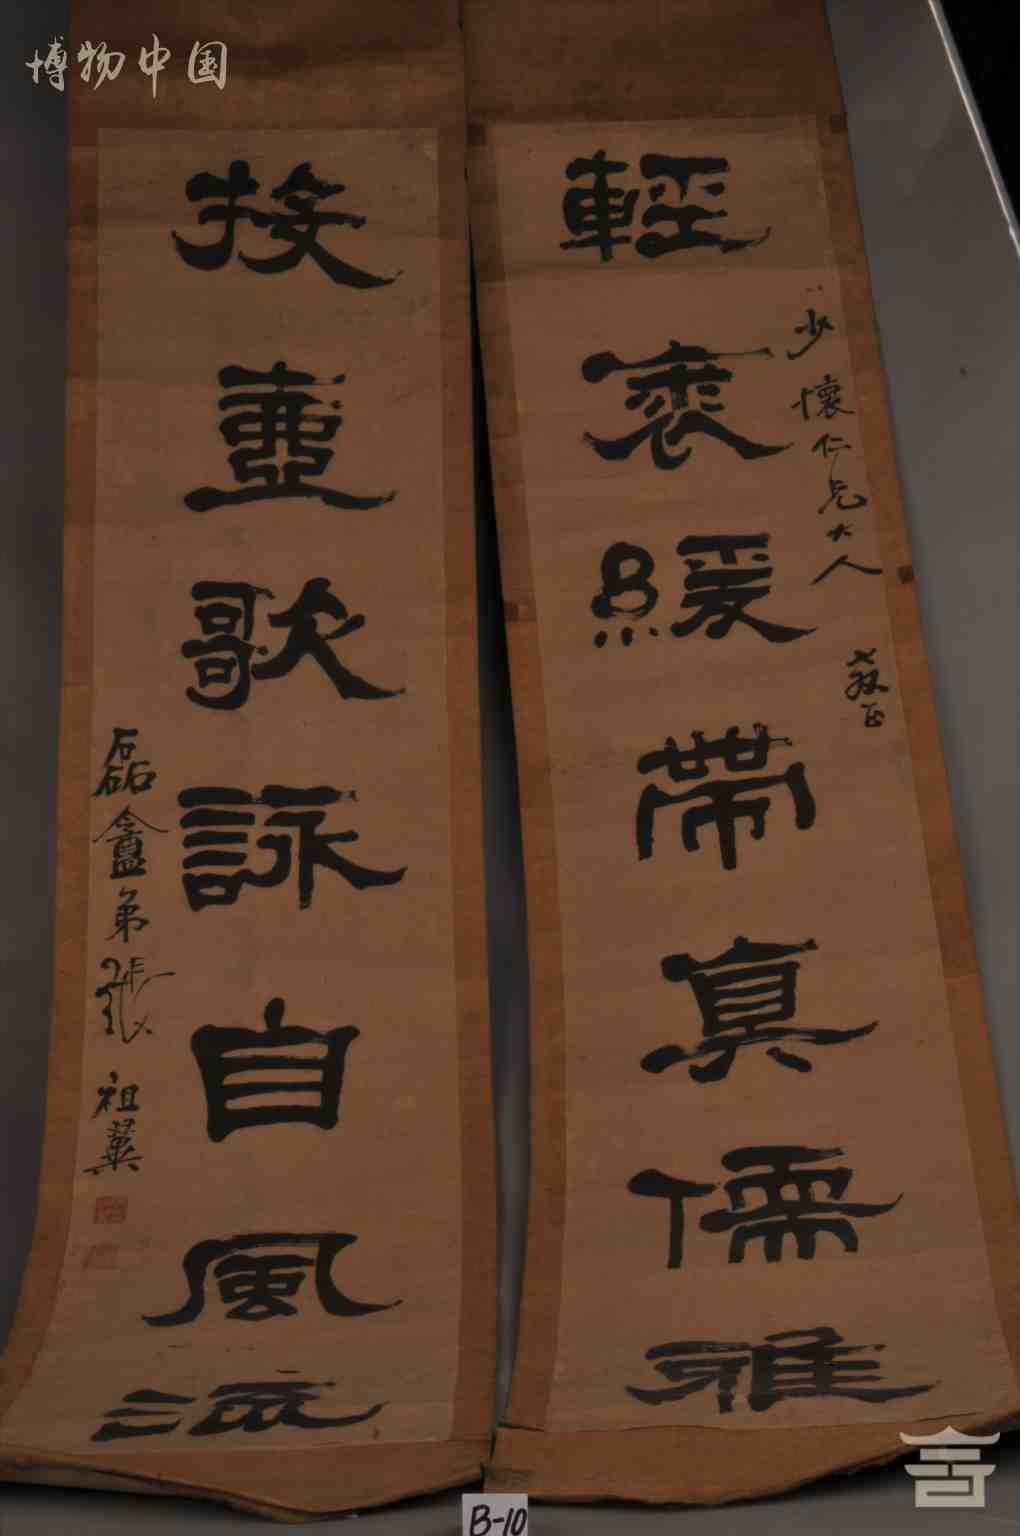 博物中国
輕裘緩帶真儒雅
少懷仁兄大人教正
投壺歌詠自風流
磊盦弟張祖翼
B-10